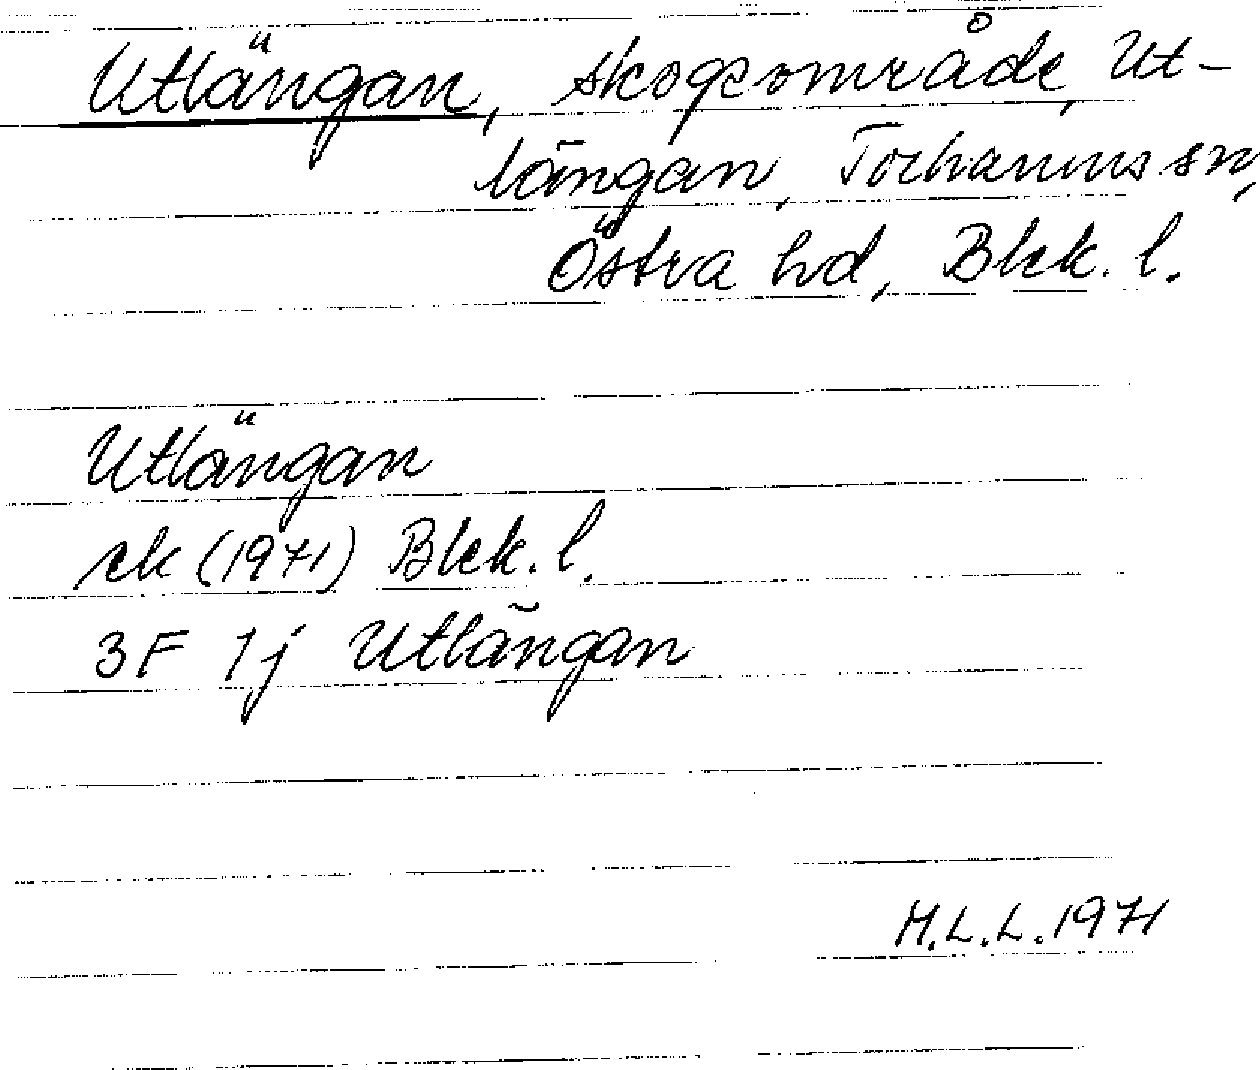 Utlängan, skogsområde, Ut-
längan, Torhamns sn,
Östra hd, Blek. l.
Utlängan
ek (1971) Blek. l.
3F 1j Utlängan
M.L.L. 1971